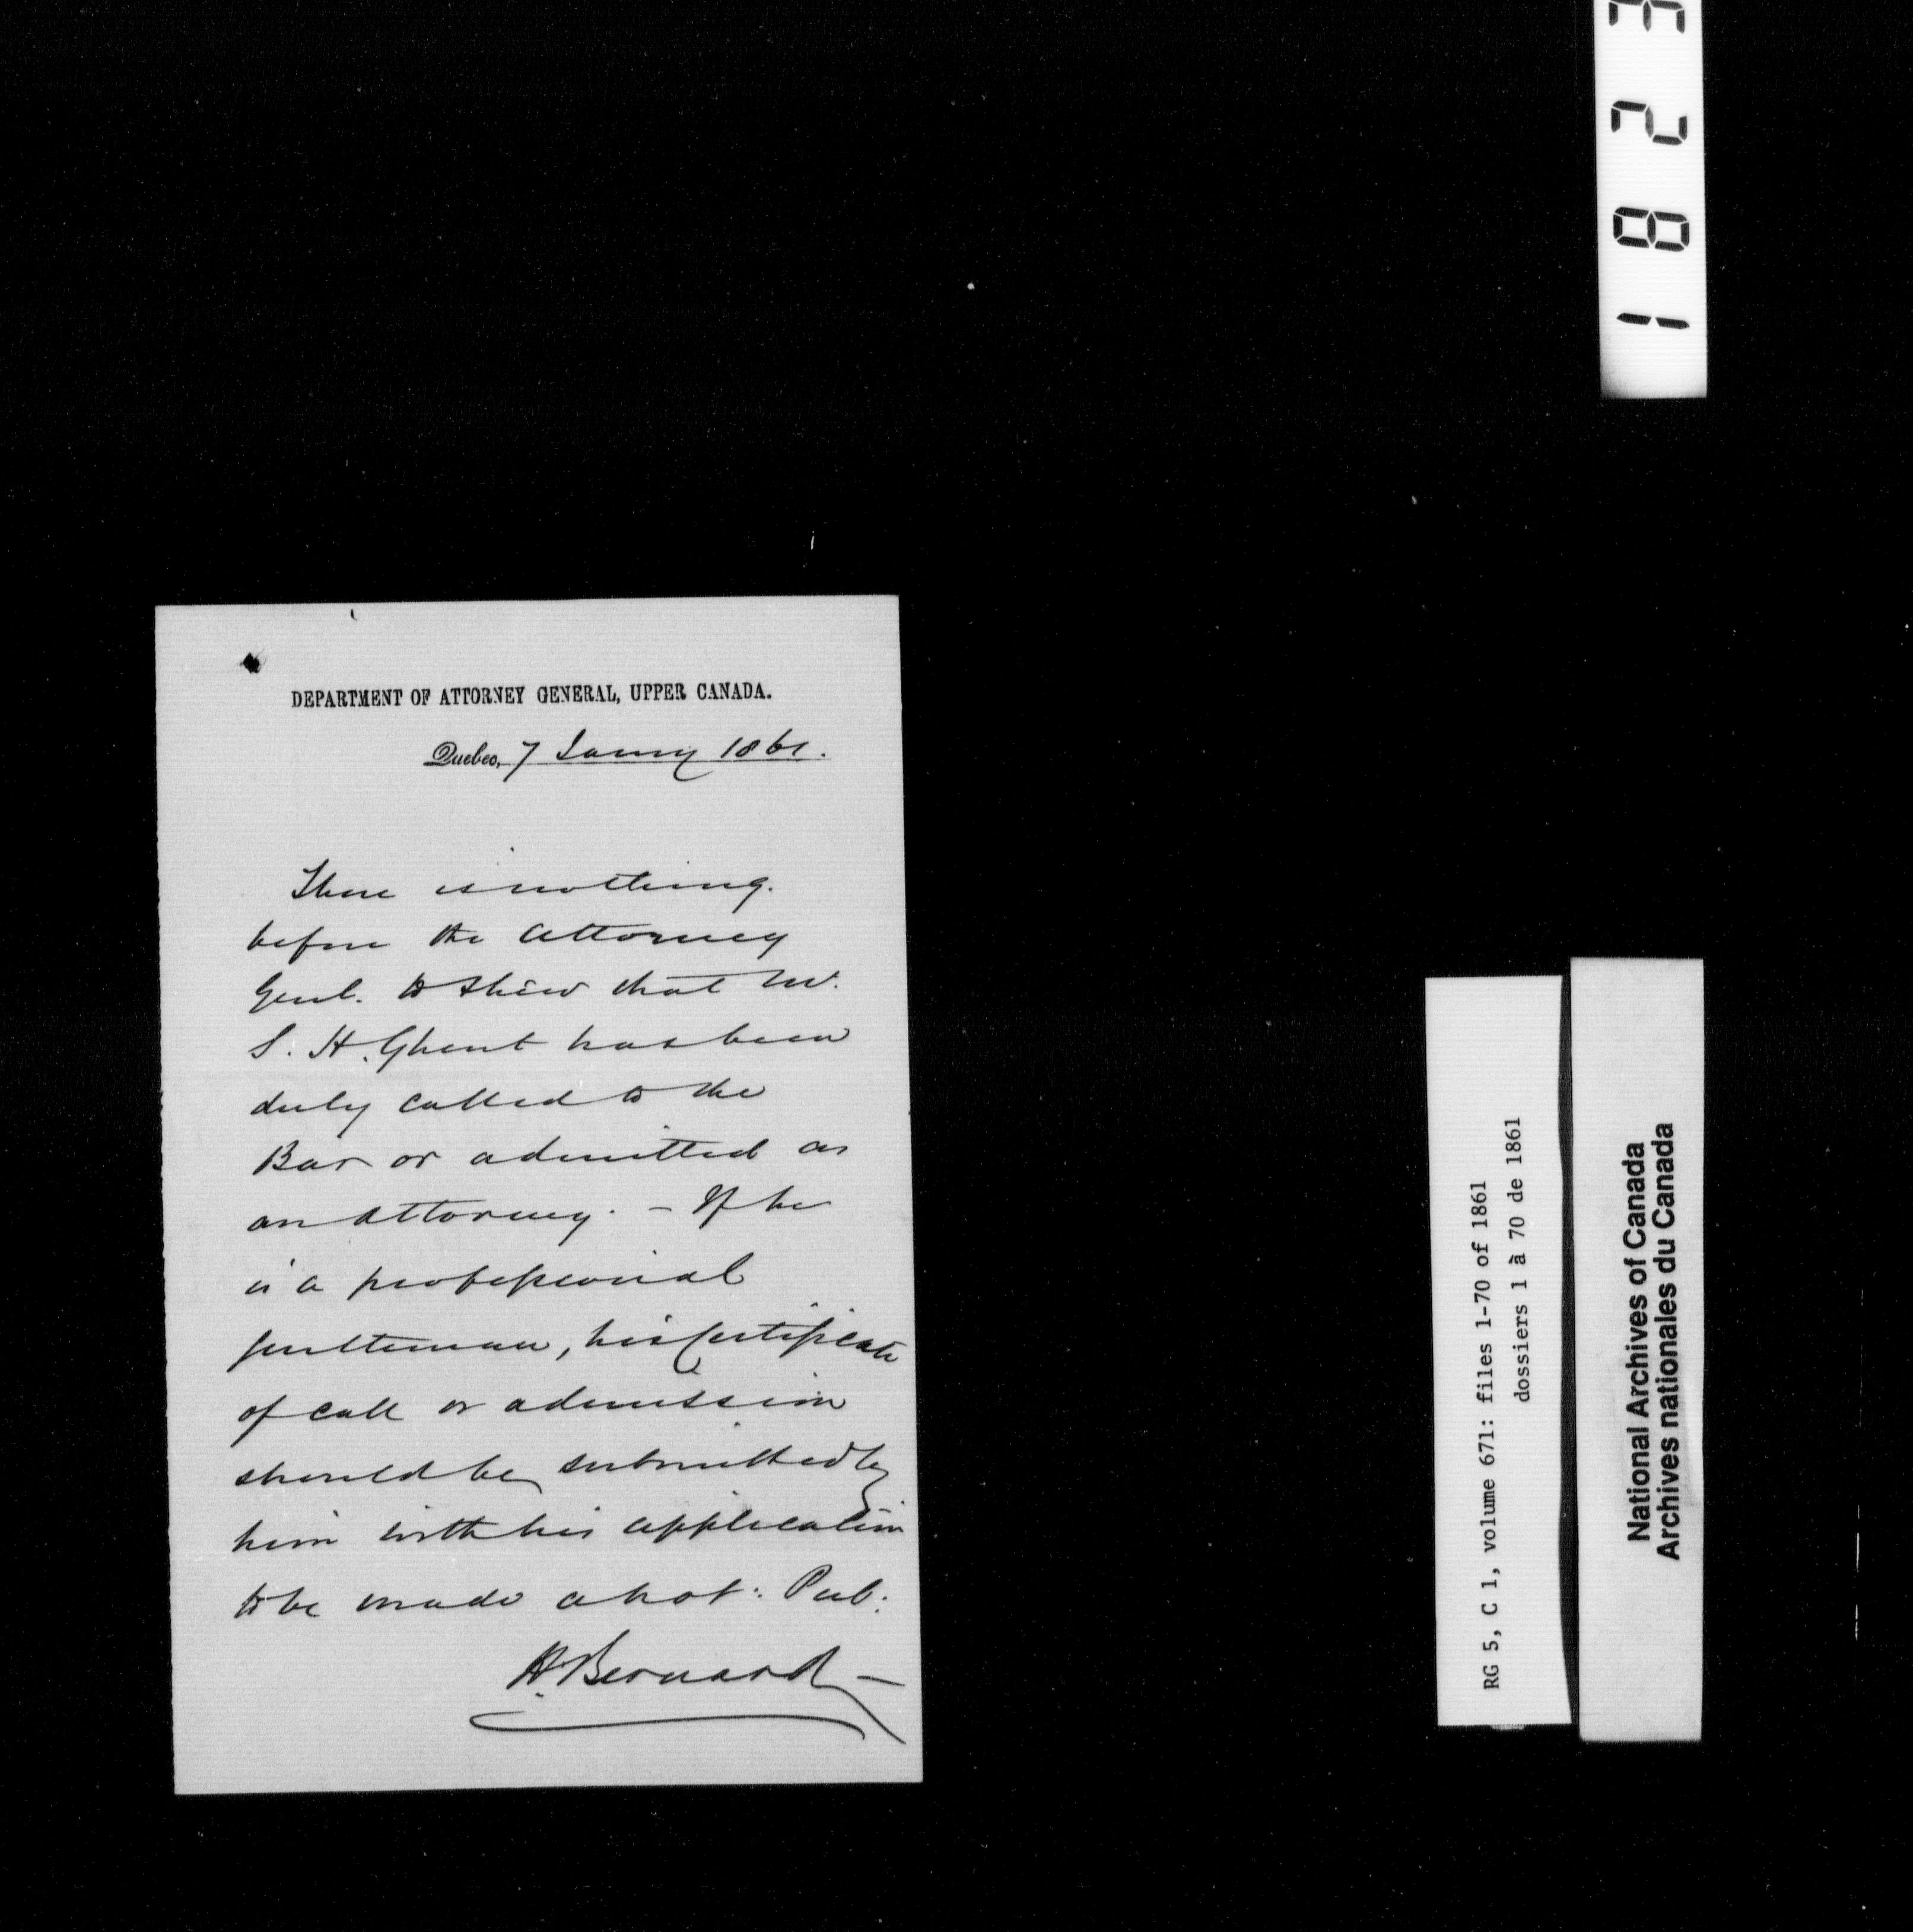 DEPARTMENT OF ATTORNEY GENERAL, UPPER CANADA.
Quebec, 7 Janry 1861.
There is nothing
before the Attorney
Genl. to shew that Mr.
S. H. Ghent has been
duly called to the
Bar or admitted as
an attorney. - If he
is a professional
gentleman, his Certificate
of call or admission
should be submitted by
him with his application
to be made a Not: Pub:
H. Bernard
1 8 2 3
RG 5, C 1, volume 671: files 1-70 of 1861
dossiers 1 à 70 de 1861
National Archives of Canada
Archives nationales du Canada